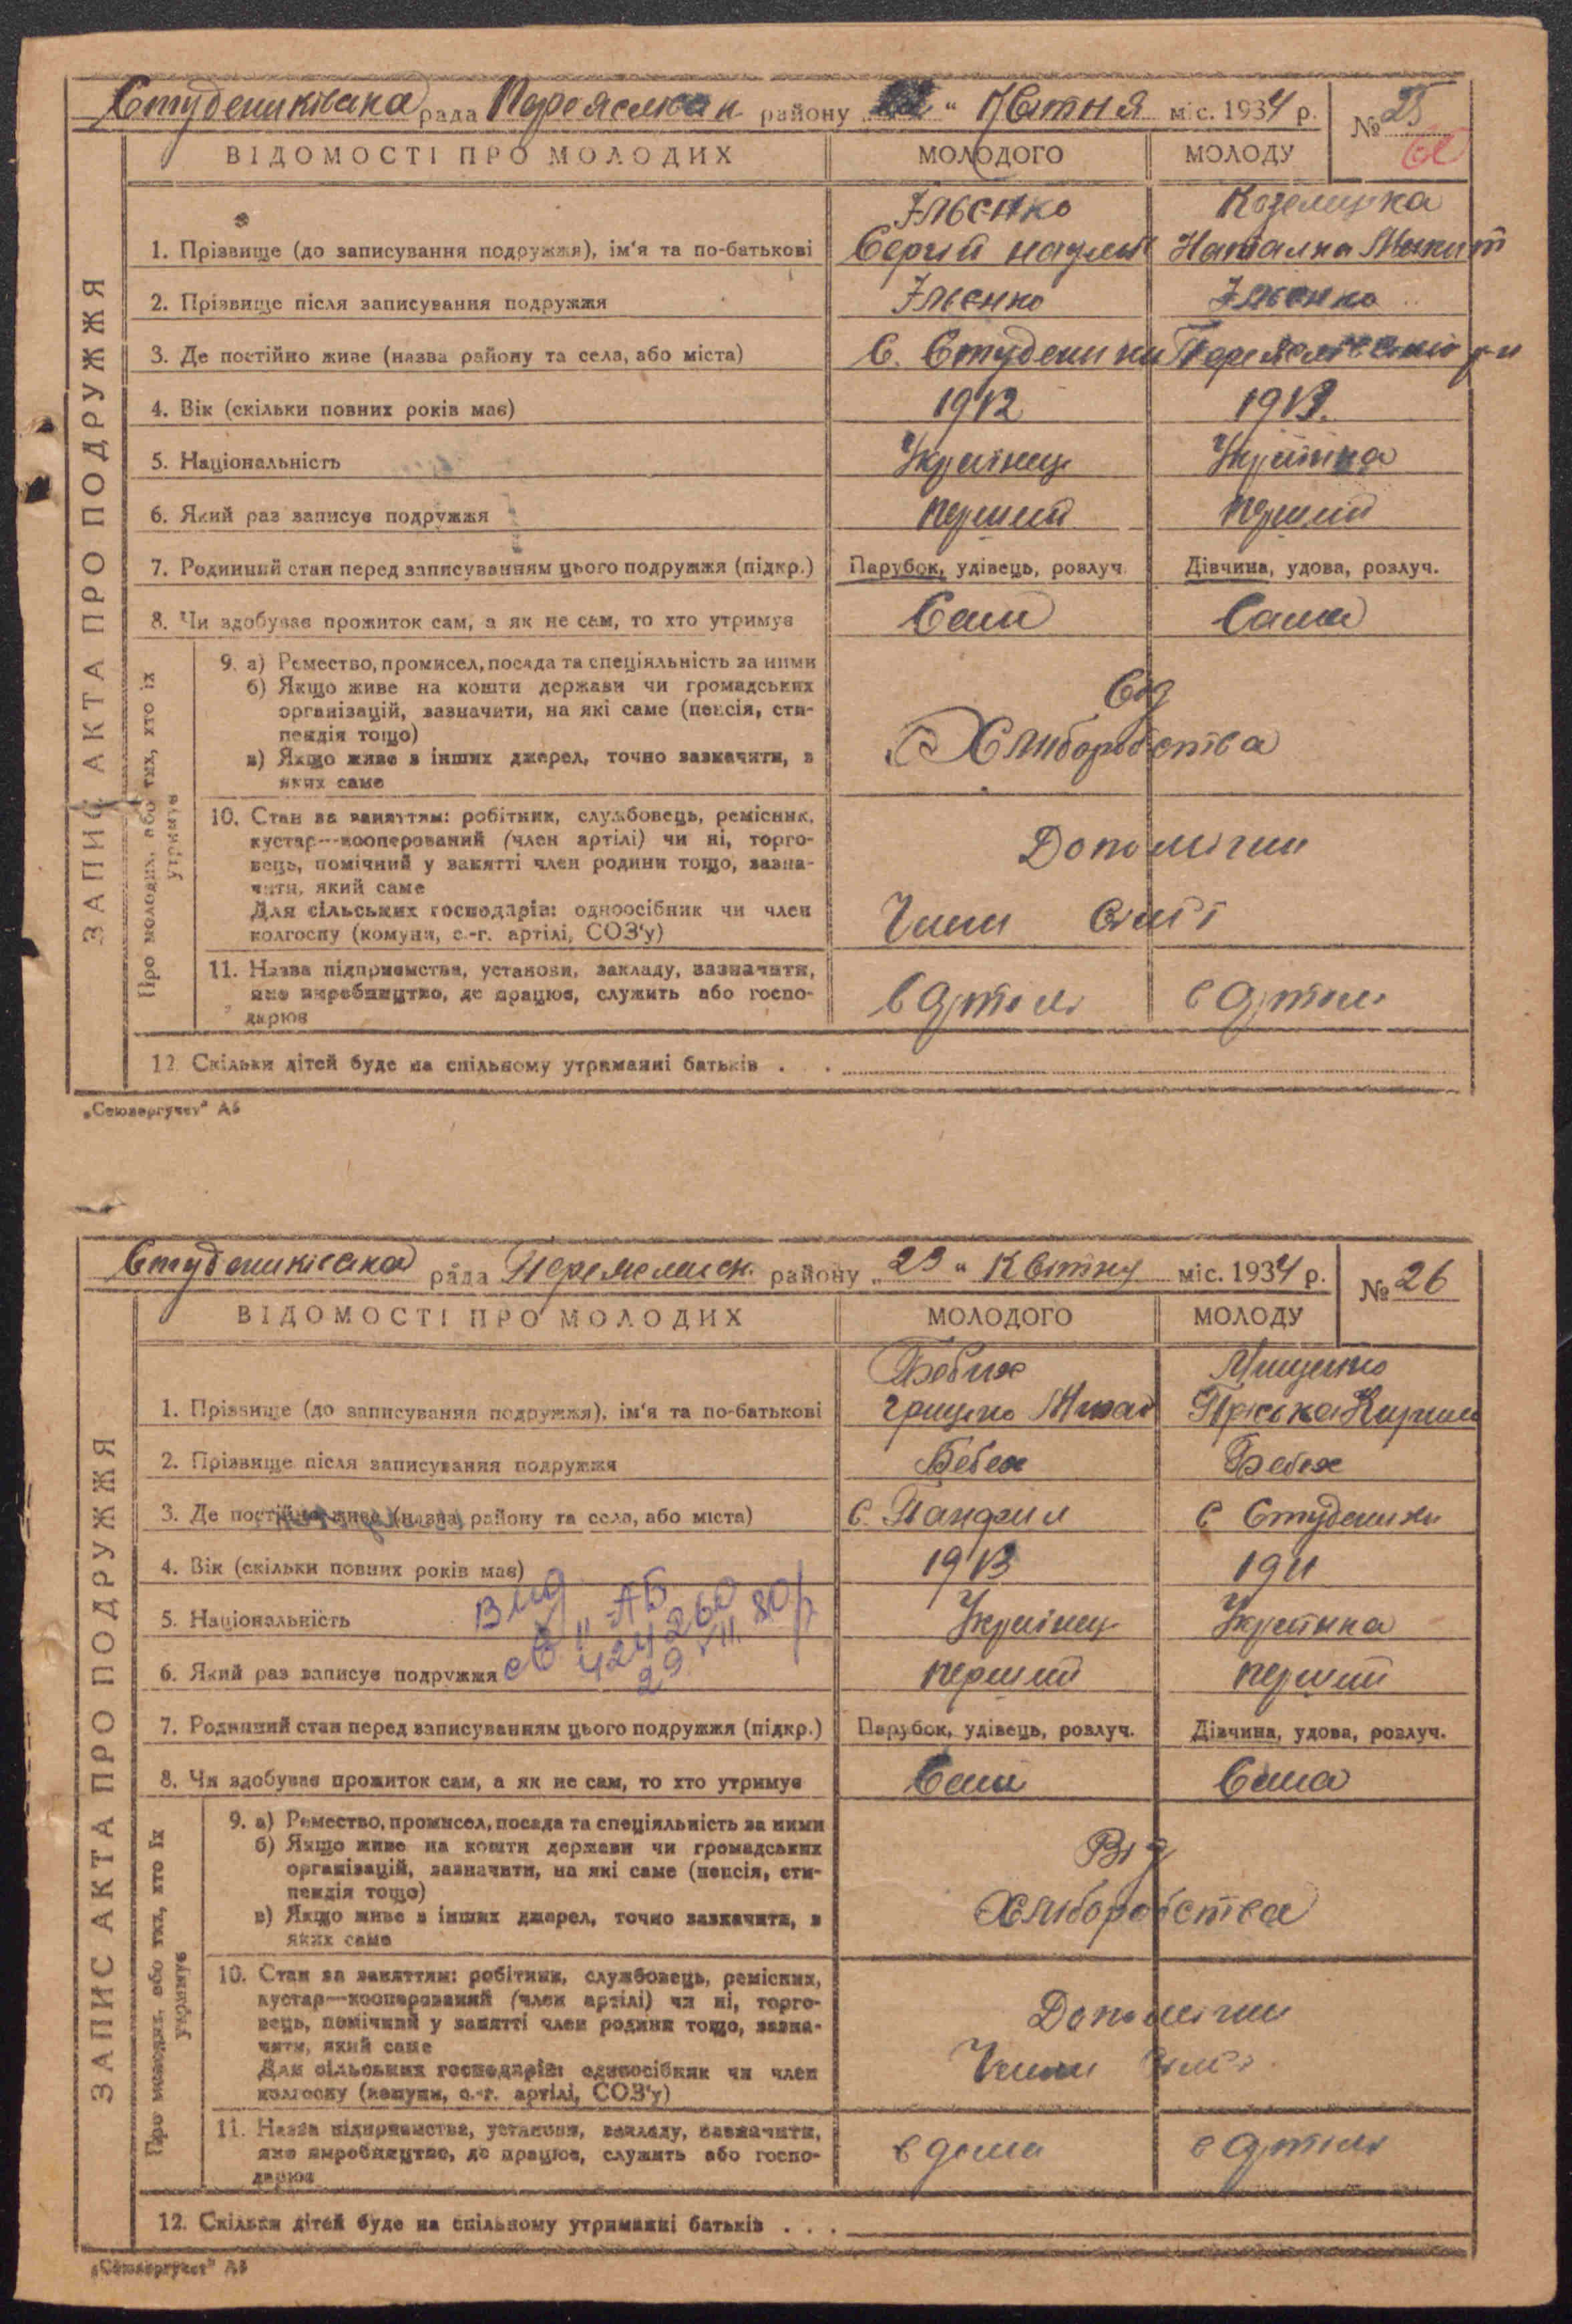 Студениківська рада Переяславськ району " " Квітня міс. 1934 р. № 25
ВІДОМОСТІ ПРО МОЛОДИХ МОЛОДОГО МОЛОДУ
ЗАПИС АКТА ПРО ПОДРУЖЖЯ
Ільєнко Козелецька
1. Прізвище (до записування подружжя), ім'я та по-батькові Сергій Наталка Микит
2. Прізвище після записування подружжя Ільєнко Ільєнко
3. Де постійно живе (назва району та села, або міста) с. Студеники Переяславський р-н
4. Вік (скільки повних років має) 1912 1913
5. Національність Українець Українка
6. Який раз записує подружжя перший перший
7. Родинний стан перед записуванням цього подружжя (підкр.) Парубок, удівець, розлуч. Дівчина, удова, розлуч.
8. Чи здобуває прожиток сам, а як не сам, то хто утримує Сам Сама
Про молодих, або тих, хто їх утримує
9. а) Ремество, промисел, посада та спеціяльність за ними
б) Якщо живе на кошти держави чи громадських
організацій, зазначити, на які саме (пенсія, сти-
пендія тощо)
в) Якщо живе з інших джерел, точно зазначити, з
яких саме
Від
Хліборобства
10. Стан за заняттям: робітник, службовець, ремісник,
кустар—кооперований (член артілі) чи ні, торго-
вець, помічний у занятті член родини тощо, зазна-
чити, який саме
Для сільських господарів: одноосібник чи член
колгоспу (комуни, с.-г. артілі, СОЗ'у)
Допоміжни
Члени сім'ї
11. Назва підприємства, установи, закладу, зазначити,
яке виробництво, де працює, служить або госпо-
дарює
в Артілі в Артілі
12. Скільки дітей буде на спільному утриманні батьків . .
„Союзоргучет" А5
Студениківська рада Переяславськ. району „23" Квітня міс. 1934 р. № 26
ВІДОМОСТІ ПРО МОЛОДИХ МОЛОДОГО МОЛОДУ
ЗАПИС АКТА ПРО ПОДРУЖЖЯ
Бебих Мищенко
1. Прізвище (до записування подружжя), ім'я та по-батькові Грицько Михай Пріська Кирил
2. Прізвище після записування подружжя Бебех Бебех
3. Де постійно живе (назва району та села, або міста) с. Панфил с Студеники
4. Вік (скільки повних років має) 1913 1911
5. Національність Українець Українка
Вид
св. II-АБ
424260
29.VII.80р
6. Який раз записує подружжя перший перший
7. Родинний стан перед записуванням цього подружжя (підкр.) Парубок, удівець, розлуч. Дівчина, удова, розлуч.
8. Чи здобуває прожиток сам, а як не сам, то хто утримує Сам Сама
Про молодих, або тих, хто їх утримує
9. а) Ремество, промисел, посада та спеціяльність за ними
б) Якщо живе на кошти держави чи громадських
організацій, зазначити, на які саме (пенсія, сти-
пендія тощо)
в) Якщо живе з інших джерел, точно зазначити, з
яких саме
Від
Хліборобства
10. Стан за заняттям: робітник, службовець, ремісник,
кустар—кооперований (член артілі) чи ні, торго-
вець, помічний у занятті член родини тощо, зазна-
чити, який саме
Для сільських господарів: одноосібник чи член
колгоспу (комуни, с.-г. артілі, СОЗ'у)
Допоміжни
Члени сім'ї
11. Назва підприємства, установи, закладу, зазначити,
яке виробництво, де працює, служить або госпо-
дарює
в дома в Артілі
12. Скільки дітей буде на спільному утриманні батьків . . .
„Союзоргучет" А5